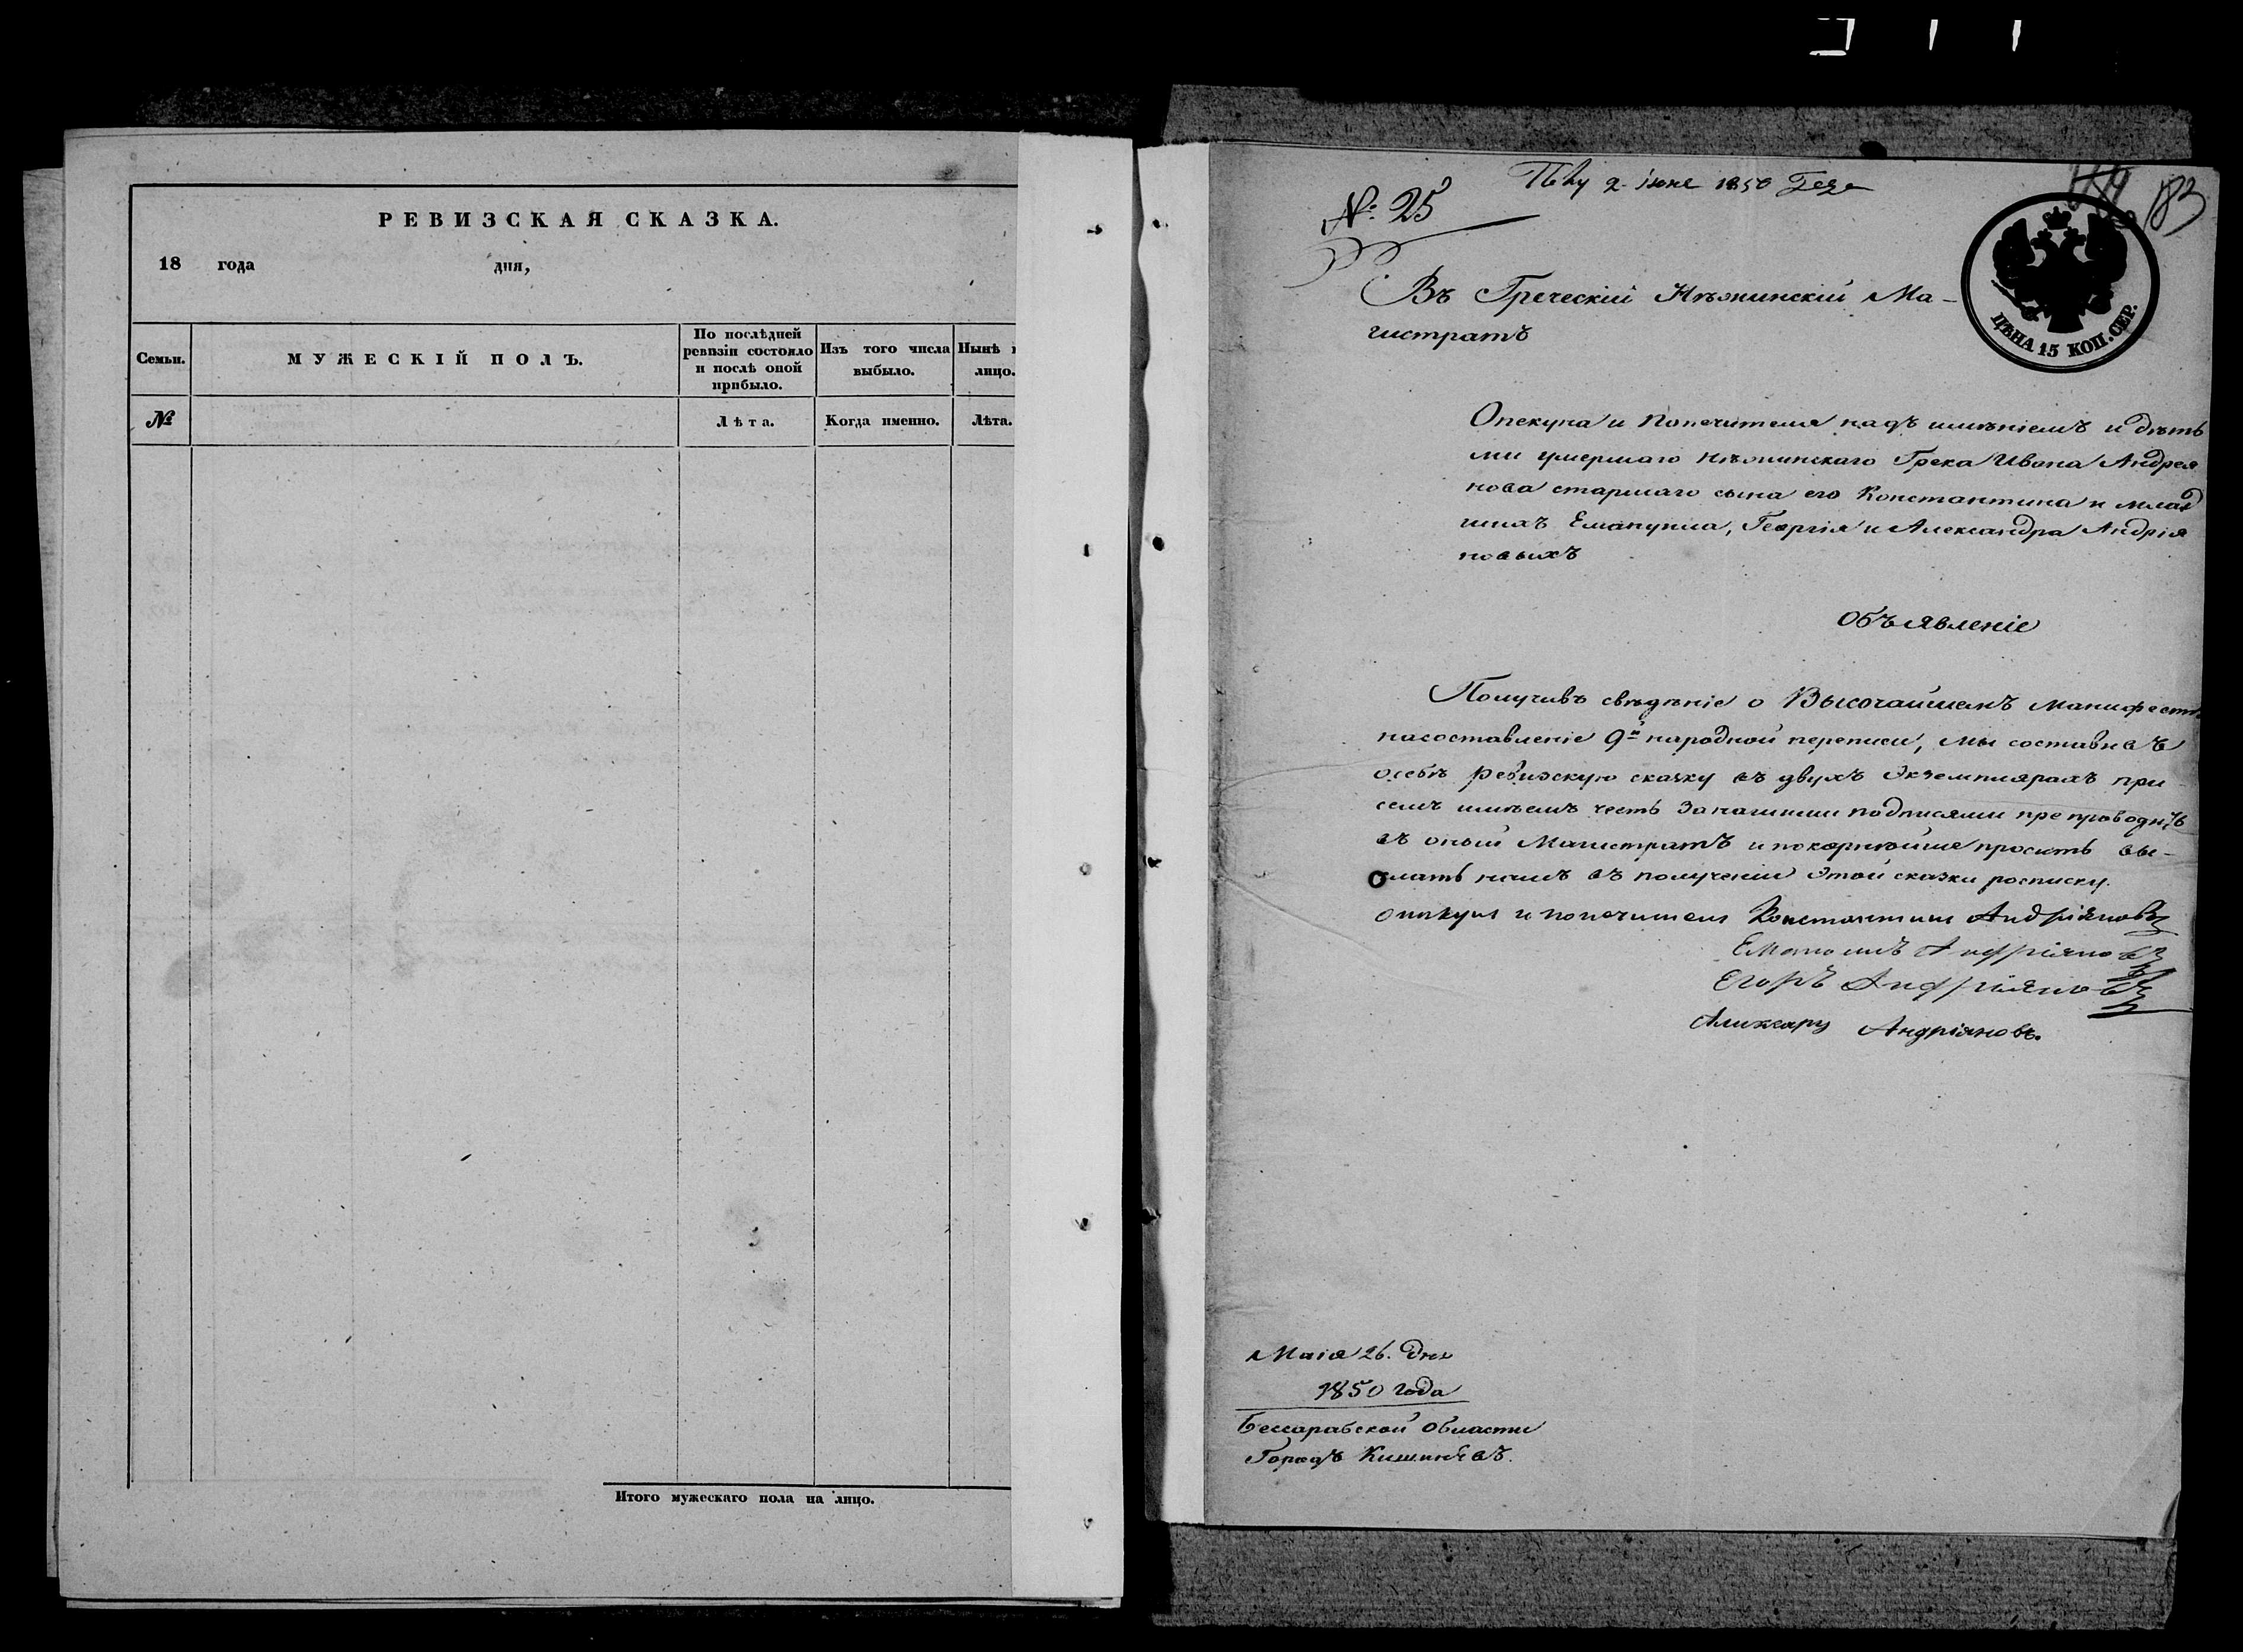 РЕВИЗСКАЯ СКАЗКА.
18 года дня,
Семьи.
МУЖЕСКІЙ ПОЛЪ.
По послѣдней
ревизіи состояло
и послѣ оной
прибыло.
Изъ того числа
выбыло.
Нынѣ
лицо.
№
Лѣта.
Когда именно.
Лѣта.
Итого мужескаго пола на лицо.
2 1850
№: 25
183
ЦѢНА 15 КОП. СЕР.
Въ Греческій Нѣжинскій Ма-
гистратъ
Опекуна и Попечителя надъ имѣніемъ и дѣть
ми умершаго Нѣжинскаго Грека Ивана Андрея
нова старшаго сына его Константина и млад
шихъ Емануила, Георгія и Александра Андрія
новыхъ
Объявленіе
Получивъ свѣдѣніе о Высочайшемъ Манифестѣ
насоставленіе 9й народной переписи, мы составивъ
осебѣ ревизскую сказку въ двухъ экземплярахъ при
семъ имѣемъ честь Занашими подписями препроводить
въ оный Магистратъ и покорнѣйше просить вы-
слать намъ въ полученіи этой сказки росписку.
опекун и попечители Константин Андріяновъ
Емануилъ Андріяновъ
Егоръ Андріяновъ
Андріяновъ.
Маія 26. дня
1850 года
Бессарабской Области
Городъ Кишинѣвъ.